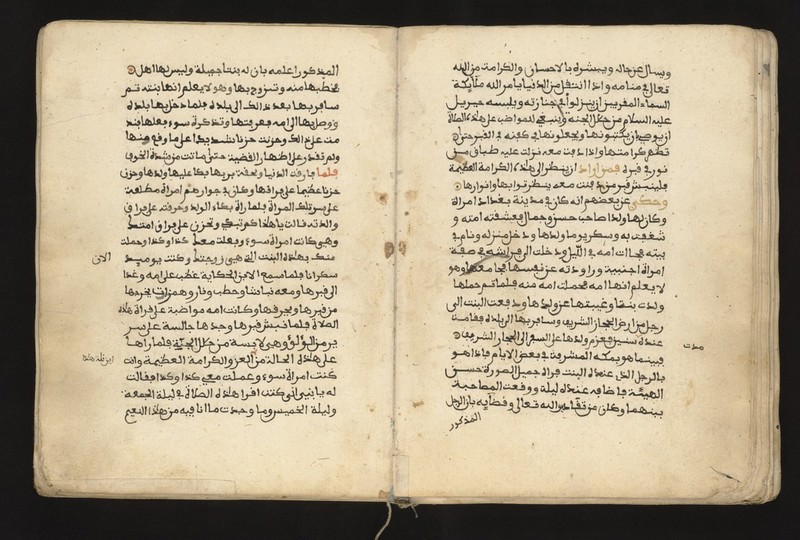 ويسال عن حاله ويبشره بالاحسان والكرامة من الله
تعالى في منامه واذا انتقل من الدنيا يامر الله ملايكة
السماء المقربين ان ينزلوا في جنازته ويلبسه جبريل
عليه السلام من حلل الجنة وينبغي للمواضب على هذه الصلاة
ان يوصي ان يكتبونها ويجعلونها في كفنه في القبر حتى ان
تظهر كرامتها واذا دفنت معه نزلت عليه طباق من
نور في قبره فمن اراد ان ينظر الى هذه الكرامة العظيمة
فلينبش قبر من دفنت معه ينظر ثوابها وانوارها
وحكي عن بعضهم انه كان في مدينة بغداد امراة
وكان لها ولدا صاحب حسن وجمال فعشقته امه و
شغفت به وسكر يوما ولدها ودخل منزله ونام في
بيته فجات امه في الليل ودخلت الى فراشه في صفة
امراة اجنبية وراودته عن نفسها فجامعها وهو
لا يعلم انها امه فحملت امه منه فلما تم حملها
ولدت بنتا وغيبتها عن ولدها ودفعت البنت الى
رجل من ارض الحجاز الشريف وسافر بها الى بلاده فقامت
عنده سنين فعزم ولدها على السفر الى الحجاز الشريف
مدت
فبينما هو بمكة المشرفة في بعض الايام فاذا هو
بالرجل الذي عنده البنت فراه جميل الصورة حسن
الهيئة فاضافه عنده ليلة ووقعت المصاحبة
بينهما وكان من تقادير الله تعالى وقضايه بان الرجل
المذكور
المذكور اعلمه بان له بنتا جميلة وليس لها اهل
فخطبها منه وتزوج بها وهو لا يعلم انها بنته ثم
سافر بها بعد ذلك الى بلده فلما دخل بها بلده
ووصل بها الى امه فعرفتها وتذكرت سوء فعلها
من على ذلك وحزنت حزنا شديدا على ما وقع منها
ولم تقدر على اظهار القضية حتى ماتت من شدة الخوف
فلما فارقت الدنيا ودفنت بقي ابنها بكا عليها ولدها وحزن
حزنا عظيما على فراقها وكان في جوارهم امراة مطلعة
على سر تلك المراة فلما رات بكاء الولد وحرقته على فراق
والدته قالت يا هذا كم تبكي وتحزن على فراق امك
وهي كانت امراة سوء وفعلت معك كذا وكذا وحملت
منك بهذه البنت التي هي زوجتك وكنت يوميذ
الان
سكرانا فلما سمع الابن الحكاية غضب على امه وغدا
الى قبرها ومعه نباشا وحطب ونار وهم ان يخرجها
من قبرها ويحرقها وكانت امه مواضبة على قراة هذه
الصلاة فلما نبش قبرها وجدها جالسة على سرير
من اللؤلؤ وهي لابسة من حلل الجنة فلما راها
على هذه الحالة من العز والكرامة العظيمة وانت
كنت امراة سوء وعملت معي كذا وكذا فقالت
له يا بني اني كنت اقرا هذه الصلاة في ليلة الجمعة
وليلة الخميس وما وجدت ما انا فيه من هذا النعيم